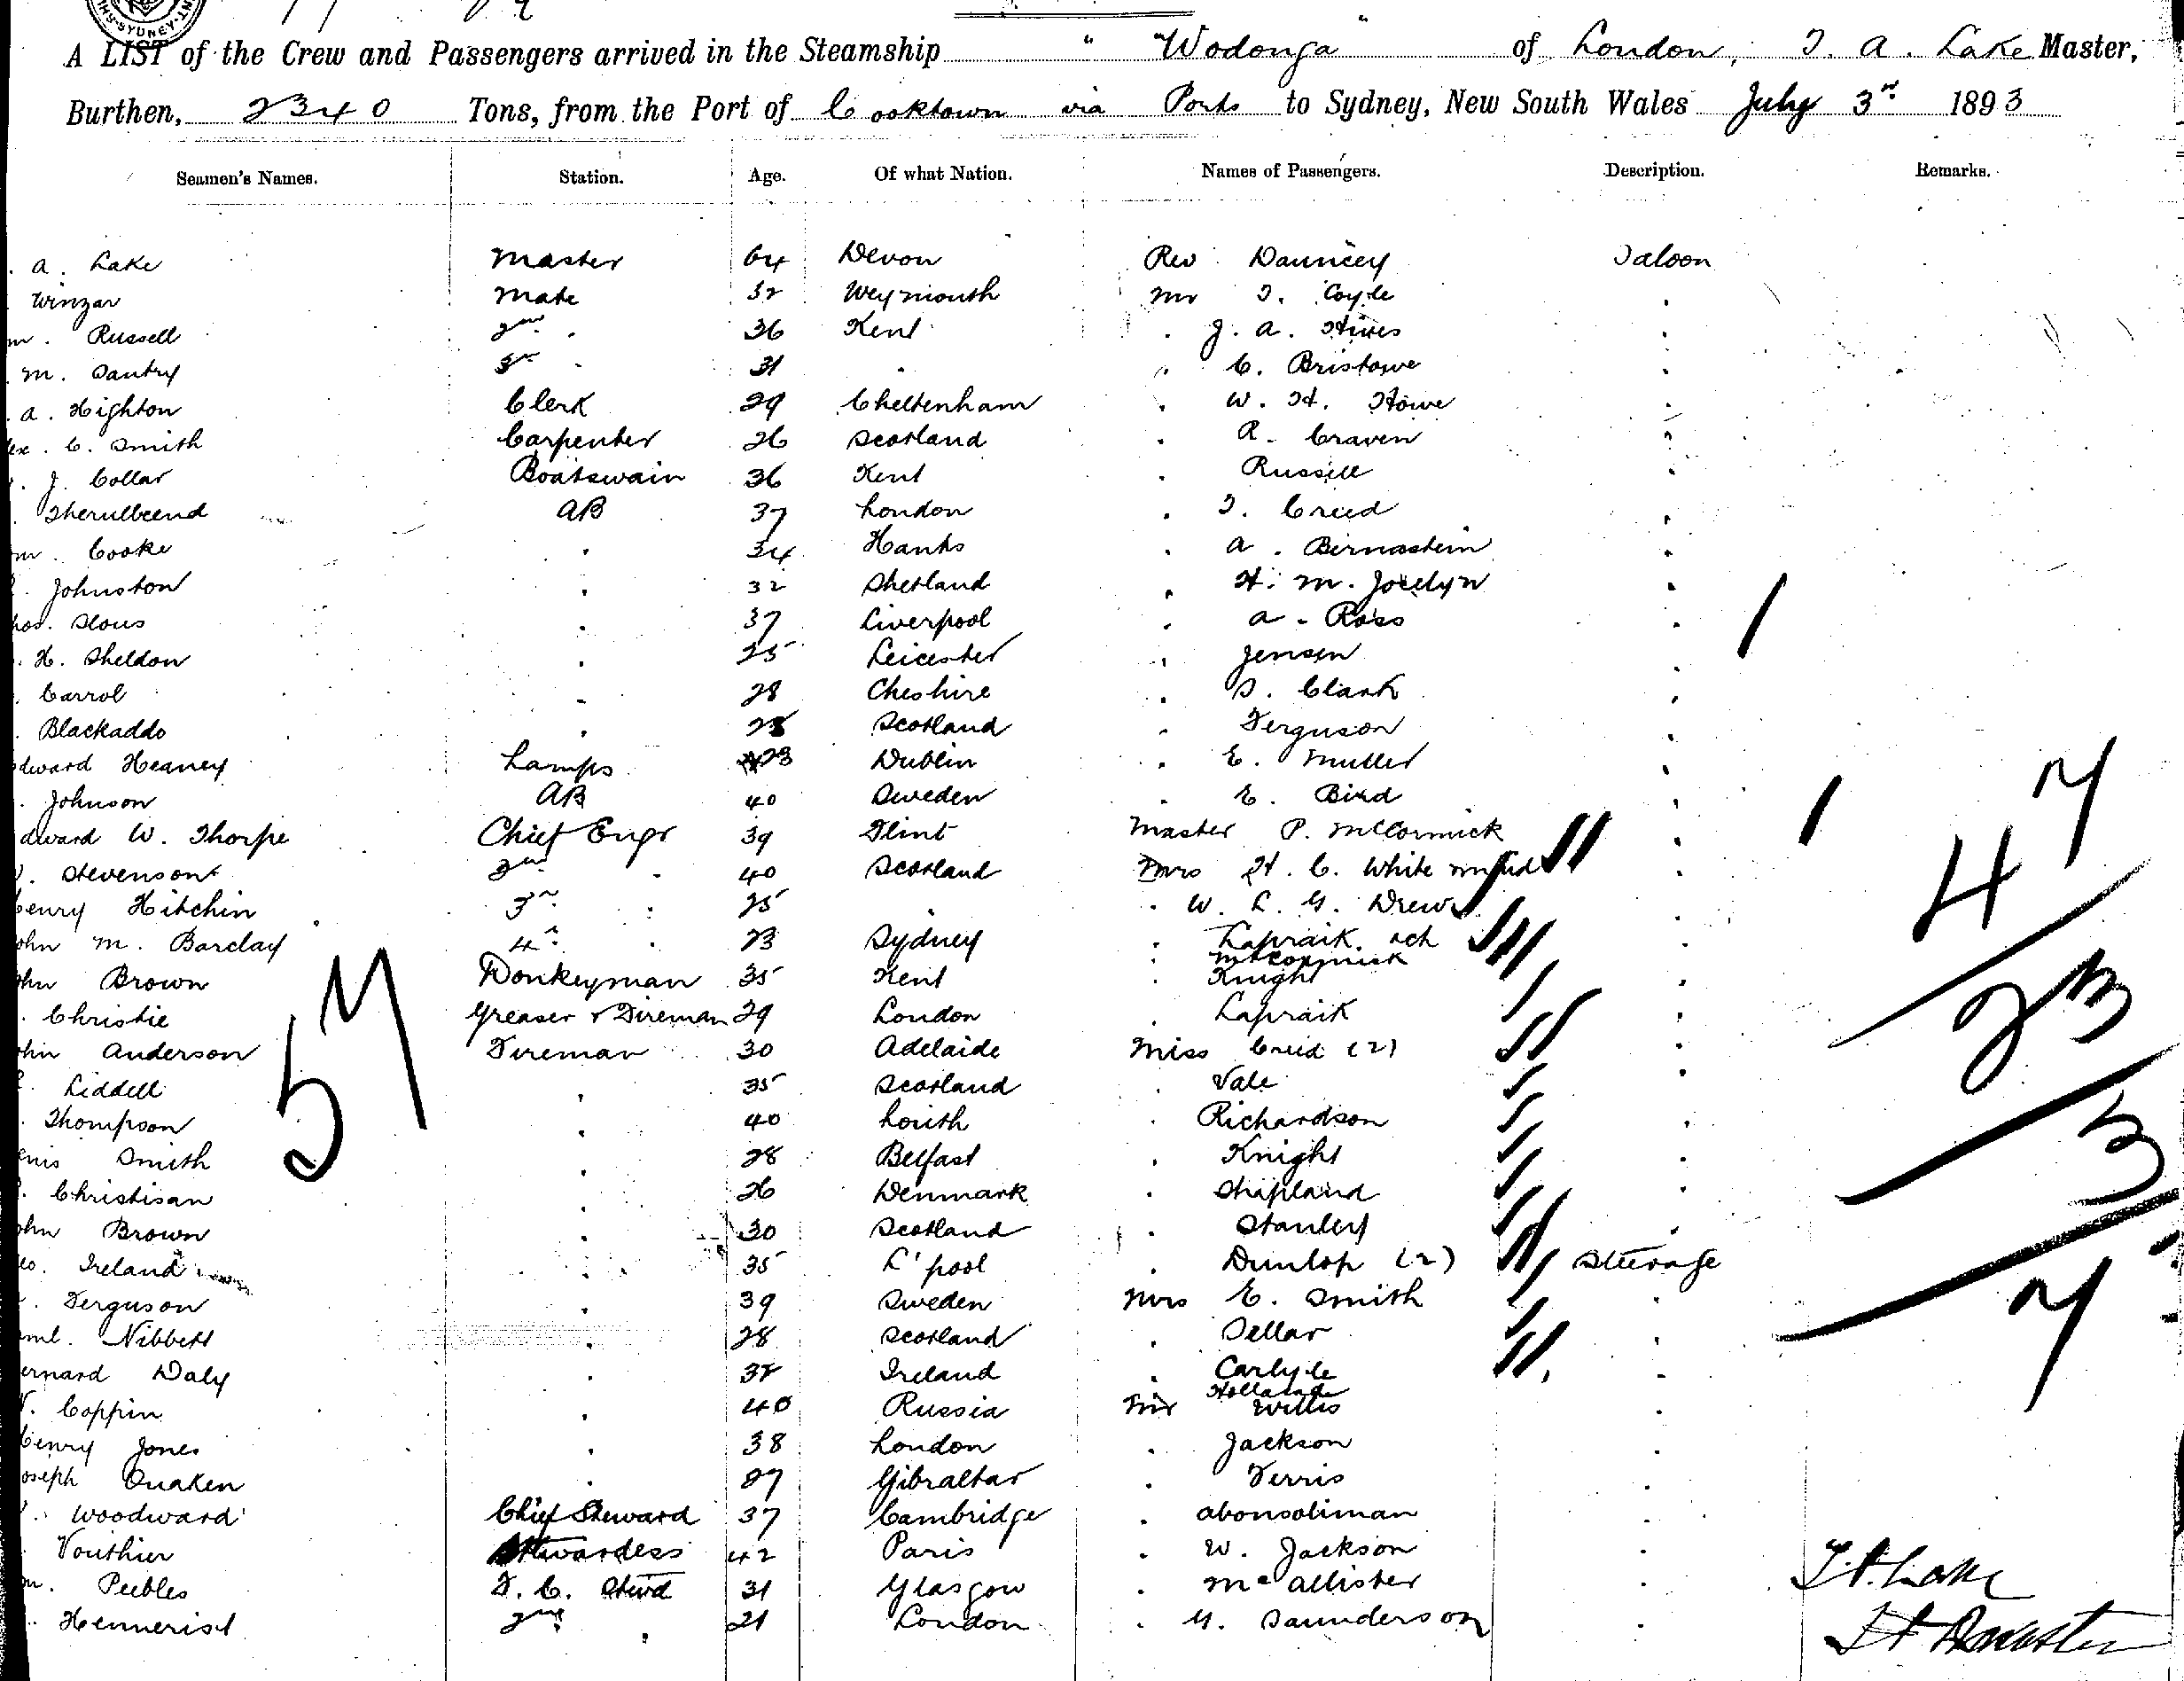 A LIST of the Crew and Passengers arrived in the Steamship "Wodonga" of London, T. A. Lake Master,
Burthen, 2340 Tons, from the Port of Cooktown via Ports to Sydney, New South Wales July 3rd 1893
Seamen's Names. Station. Age. Of what Nation. Names of Passengers. Description. Remarks.
. A. Lake Master 64 Devon Rev Dauncey Saloon
Winzar Mate 32 Weymouth Mr T. Coyle
m. Russell 2nd " 36 Kent " J. A. Hives
. M. Santry 3rd " 31 " " C. Bristowe
. A. Highton Clerk 29 Cheltenham " W. H. Howe
ex. C. Smith Carpenter 26 Scotland " R. Craven
. J. Collar Boatswain 36 Kent " Russell
AB 37 London " T. Creed
m. Cooke " 34 Hants " A. Bernastein
. Johnston " 32 Shetland " H. M. Jocelyn
hos. Slous " 37 Liverpool " A. Ross
. H. Sheldon " 25 Leicester " Jensen
. Carrol " 28 Cheshire " S. Clark
. Blackaddo " 28 Scotland " Ferguson
dward Heaney Lamps 23 Dublin " E. Muller
. Johnson AB 40 Sweden " E. Bird
dward W. Thorpe Chief Engr 39 Flint Master P. McCormick
. Stevenson 2nd " 40 Scotland Mrs H. C. White
enry Hitchin 3rd " 25 " " W. L. G. Drew
ohn M. Barclay 4th " 23 Sydney " Lapraik
" McCormick
ohn Brown Donkeyman 35 Kent " Knight
. Christie Greaser & Fireman 29 London " Lapraik
ohn Anderson Fireman 30 Adelaide Miss Creed (2)
. Liddell " 35 Scotland " Vale
. Thompson " 40 Louth " Richardson
enis Smith " 28 Belfast " Knight
. Christisan " 26 Denmark " Shipland
ohn Brown " 30 Scotland " Stanley
eo. Ireland " 35 L'pool " Dunlop (2) Steerage
. Ferguson " 39 Sweden Mrs E. Smith
aml. Nibbett " 28 Scotland " Sellar
ernard Daly " 38 Ireland " Carlyle
Holland
. Coppin " 40 Russia Mr Willis
enry Jones " 38 London " Jackson
oseph Quaken " 27 Gibraltar " Ferris
. Woodward Chief Steward 37 Cambridge " Abonsoliman
Vouthier Stewardess 42 Paris " W. Jackson
m. Peebles F. C. Stwd 31 Glasgow " McAllister
. Hennerist 2nd " 21 London " G. Saunderson
57
47
23
3
7
T. A. Lake